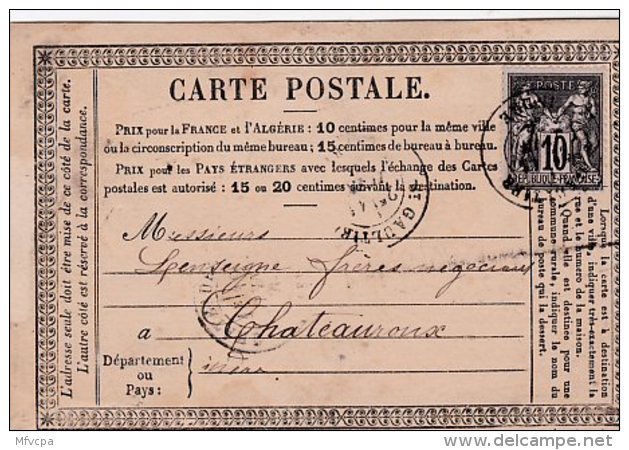 CARTE POSTALE.
PRIX pour la FRANCE et l'ALGÉRIE : 10 centimes pour la même ville
ou la circonscription du même bureau ; 15 centimes de bureau à bureau.
PRIX pour les PAYS ÉTRANGERS avec lesquels l'échange des Cartes
postales est autorisé : 15 ou 20 centimes suivant la destination.
POSTE
10
REPUBLIQUE FRANÇAISE
GAULTIER
Messieurs
frères négociants
a Chateauroux
Département
ou
Pays :
indre
L'adresse seule doit être mise de ce côté de la carte.
L'autre côté est réservé à la correspondance.
Lorsque la carte est à destination
d'une ville, indiquer très-exactement la
rue et le numéro de la maison.
Quand elle est destinée pour une
commune rurale, indiquer le nom du
bureau de poste qui la dessert.
Mfvcpa
delcampe.net